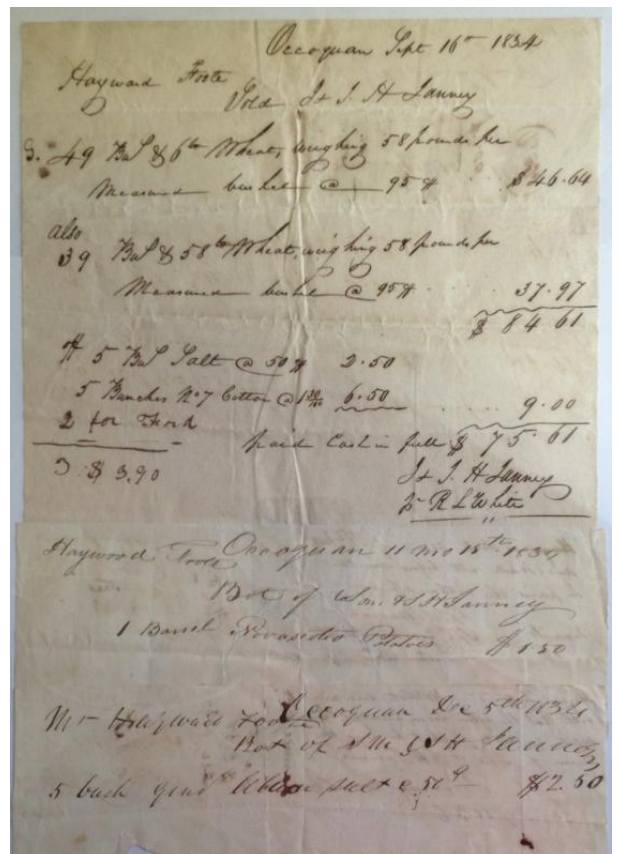 Occoquan Sept 16th 1834
Hayward Foote
Sold J & S. H Janney
49 Bus & 6 lb Wheat, weighing 58 pounds per
Measured bushel @ 95 $46.64
also
39 Bus & 58 lb Wheat, weighing 58 pounds per
Measured bushel @ 95 37.97
$ 84 61
5 Bus Salt @ 50 2.50
5 Bunches No 7 Cotton @ 1 30/100 6.50 9.00
2 for
paid Cash in full $ 75.61
3 $ 3.90
J & S. H Janney
pr R L White
Haywood Foote Occoquan 11 mo 15th 1834
Bot of & S H Janney
1 Barrel Potatoes $1.50
Mr Haywood Foote Occoquan Dec 5th 1834
Bot of & S H Janney
5 bush salt @ 50 $2.50